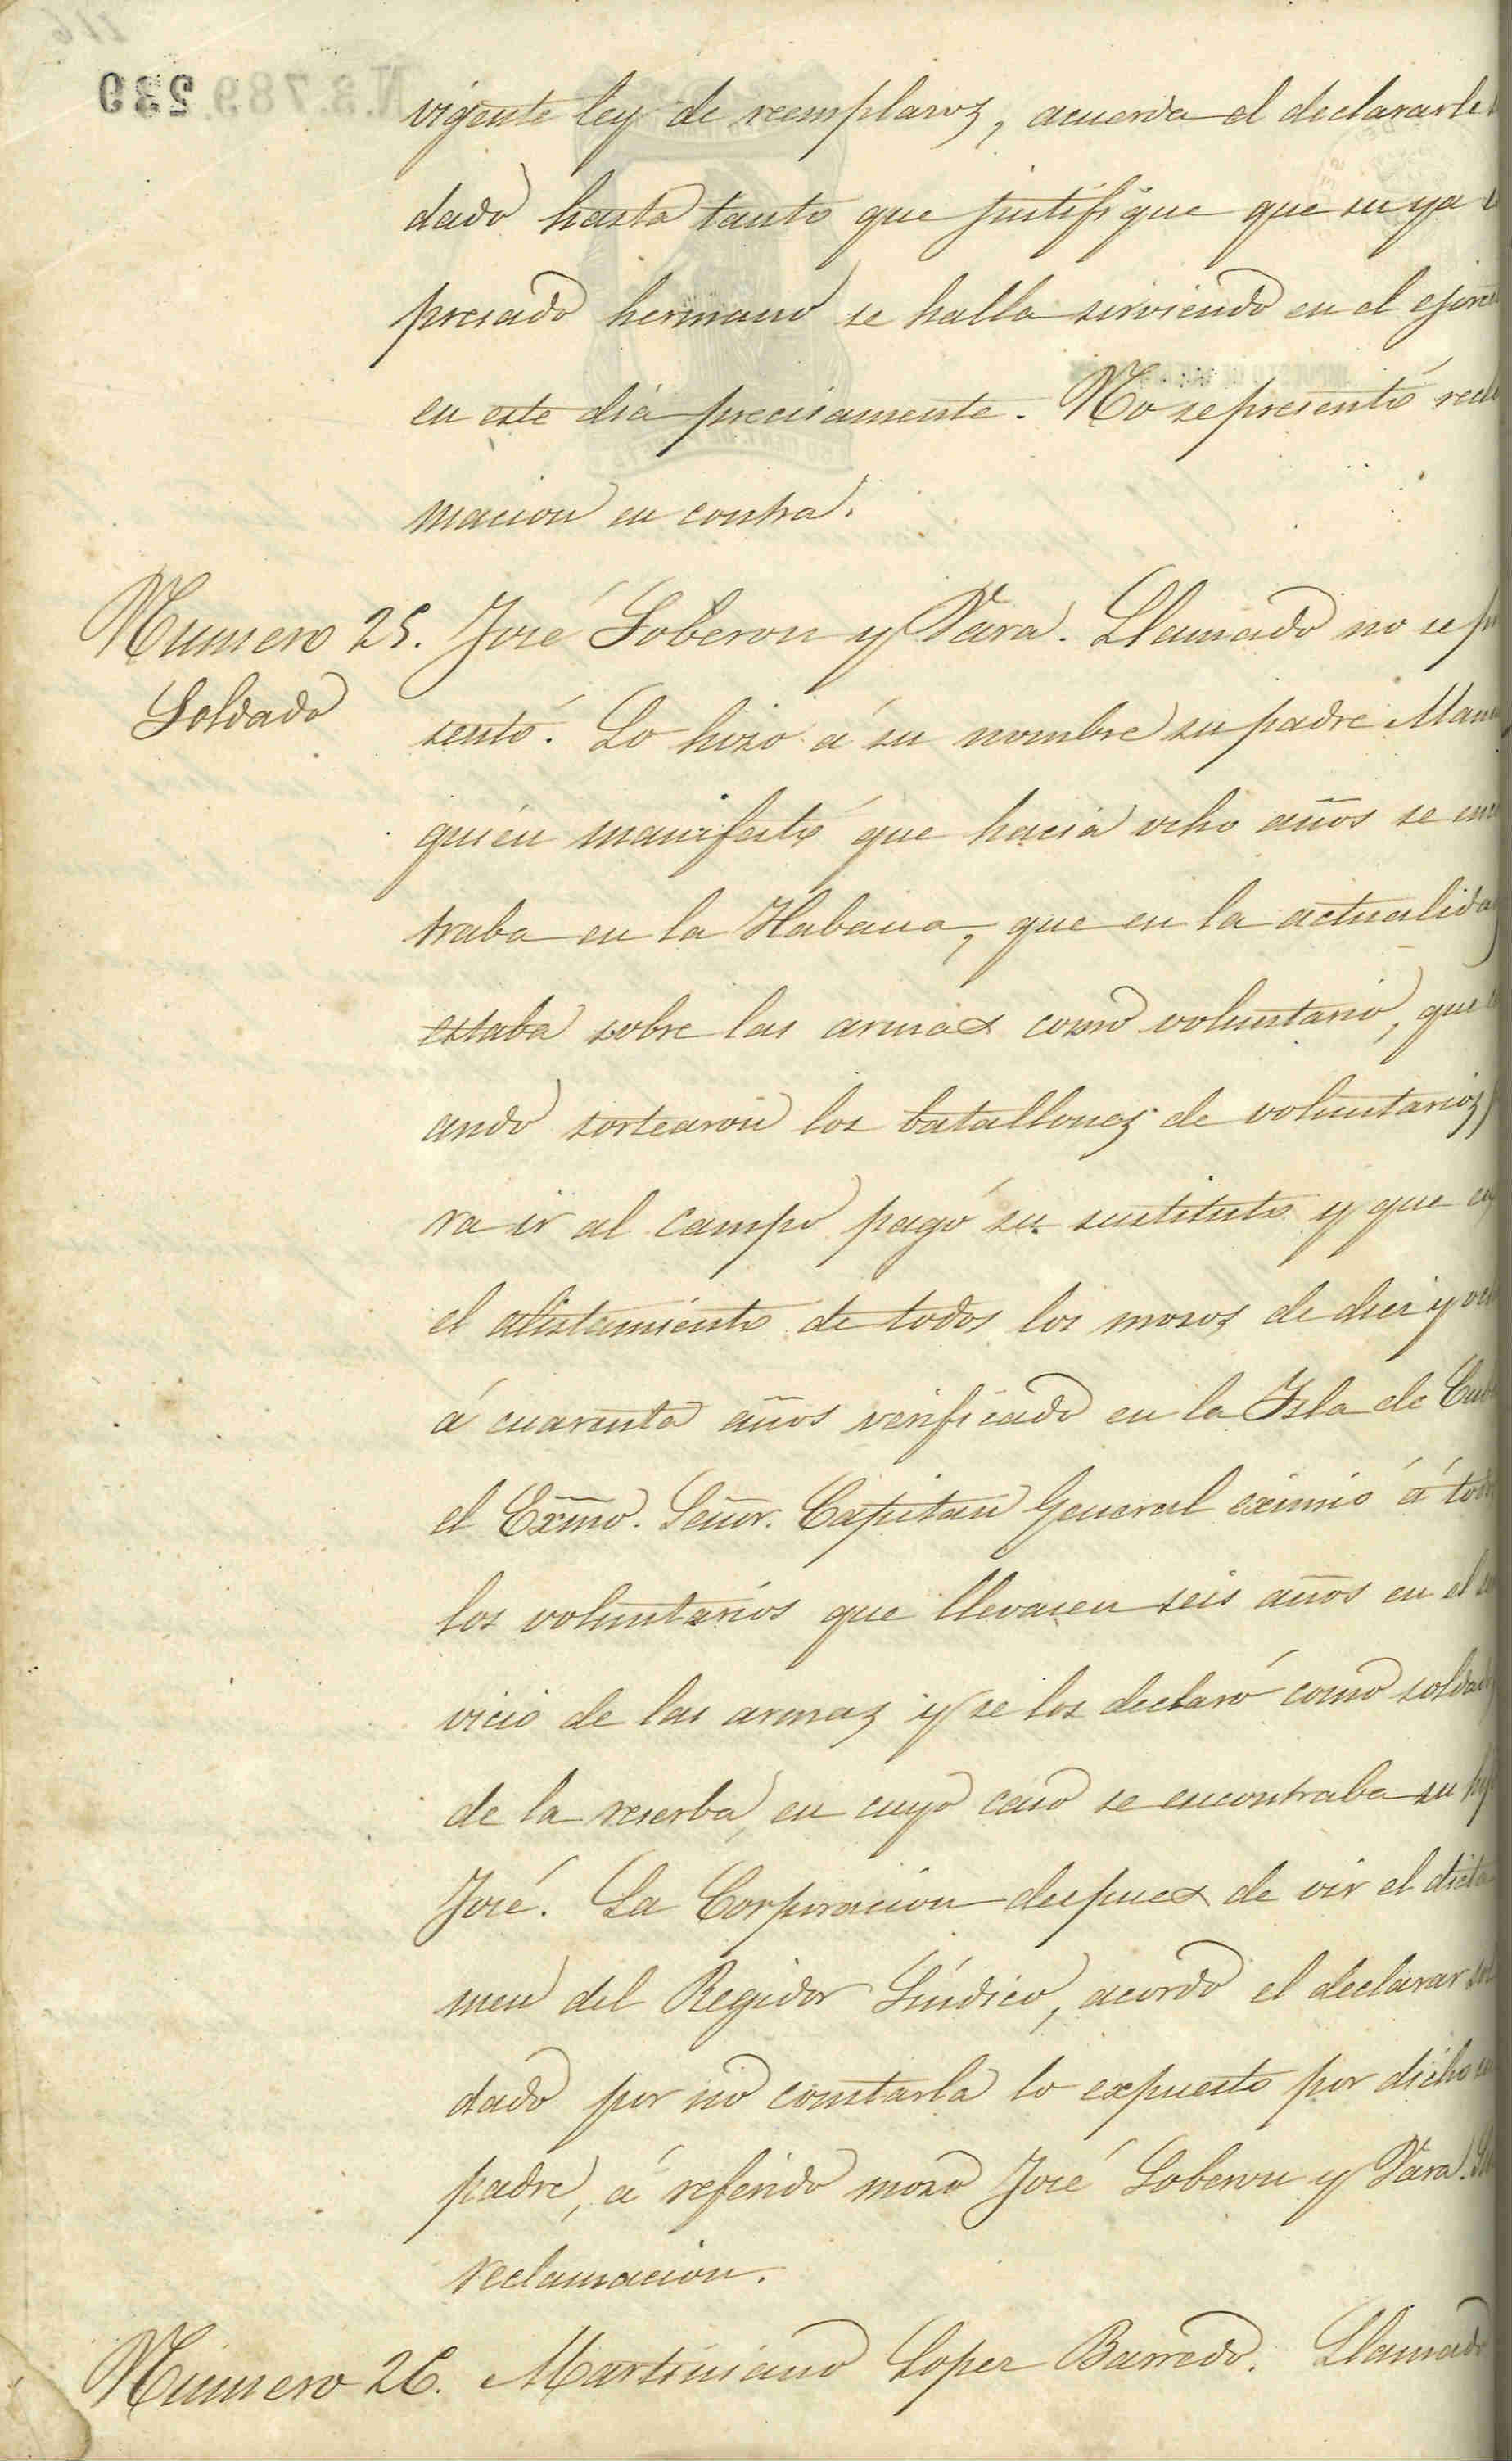 N.3.789.239
vigente ley de reemplazos, acuerda el declararle
dado hasta tanto que justifique que su ya
presado hermano se halla sirviendo en el ejerci
en este dia precisamente. No se presentó recla
macion en contra.
Numero 25. José Soberon y Vara. Llamado no se p
Soldado
sentó. Lo hizo á su nombre su padre Man
quién manifestó que hacia ocho años se enc
traba en la Habana, que en la actualida
estaba sobre las armas como voluntario, que
ando sortearon los batallones de voluntarios
ra ir al campo pagó su sustituto y que
el alistamiento de todos los mozos de diez y oc
á cuarenta años verificado en la Isla de Cub
el Exmo. Señor. Capitan General eximió á tod
los voluntarios que llevasen seis años en el
vicio de las armas y se los declaró como soldad
de la reserba, en cuyo caso se encontraba su hij
José. La Corporacion despues de oir el dicta
men del Regidor Síndico, acordó el declarar sol
dado por no constarla lo expuesto por dicho
padre, á referido mozo José Soberon y Vara.
reclamacion.
Número 26. Martiniano Lopez Barredo. Llamado